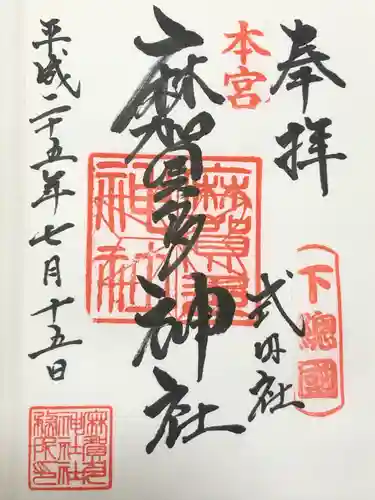 奉拝
下總國
式内社
本宮
麻賀多神社
麻賀多神社
平成二十五年七月十五日
麻賀多神社社務所印